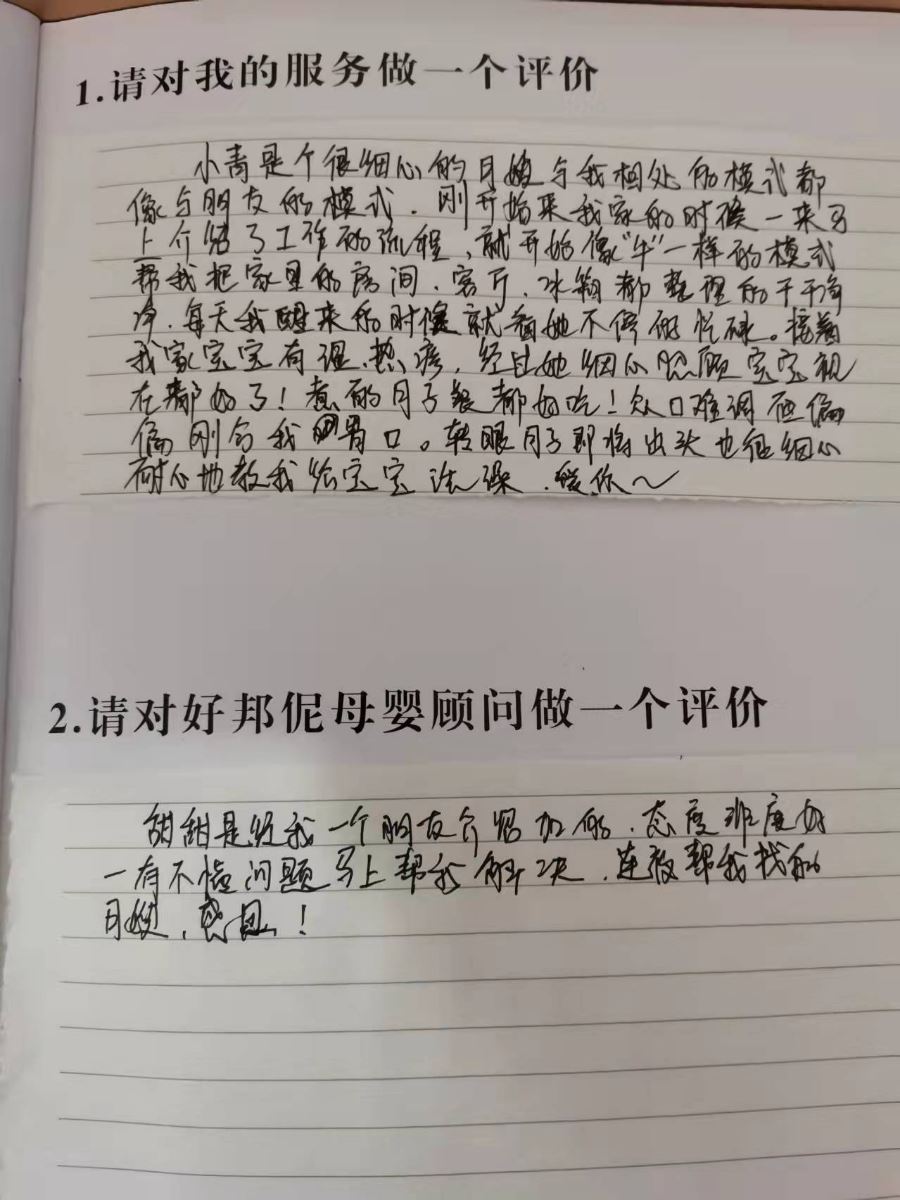 1.请对我的服务做一个评价
小青是个很细心的月嫂与我相处的模式都
像与朋友的模式.刚开始来我家的时候一来马
上介绍了工作的流程,就开始像“牛”一样的模式
帮我把家里的房间.客厅.冰箱都整理的干干净
净.每天我醒来的时候就看她不停的忙碌。接着
我家宝宝有湿.热疹,经过她细心照顾宝宝现
在都好了!煮的月子餐都好吃!众口难调但偏
偏刚合我胃口。转眼月子即将出头也很细心
耐心地教我给宝宝洗澡.爱你~
2.请对好邦伲母婴顾问做一个评价
甜甜是经我一个朋友介绍加的.态度非度好
一有不懂问题马上帮我解决.连夜帮我找到
月嫂,感恩!